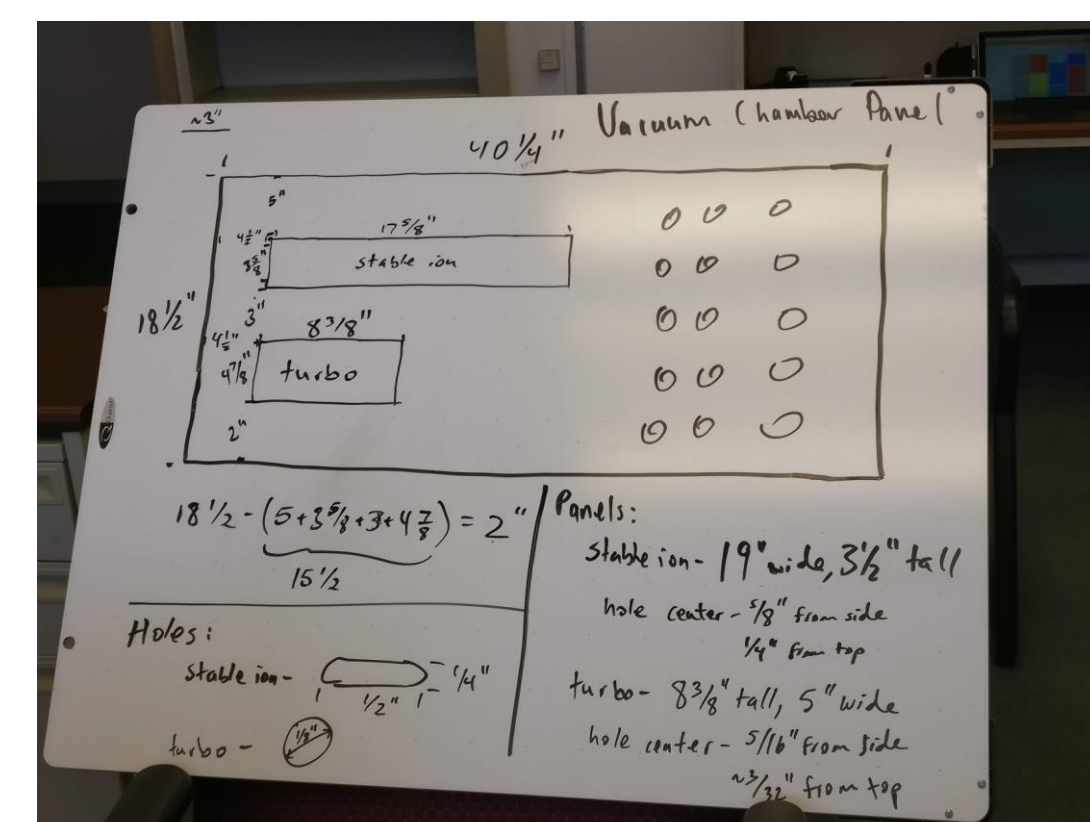 ~3"
Vacuum Chamber Panel
40 1/4"
5"
4 1/2"
17 5/8"
3 5/8"
stable ion
18 1/2"
3"
8 3/8"
4 1/2"
4 7/8"
turbo
2"
18 1/2 - (5+3 5/8+3+4 7/8) = 2"
15 1/2
Holes:
stable ion-
1/4"
1/2"
turbo -
1/8"
Panels:
Stable ion- 19" wide, 3 1/2" tall
hole center - 5/8" from side
1/4" from top
turbo- 8 3/8" tall, 5" wide
hole center - 5/16" from side
~3/32" from top